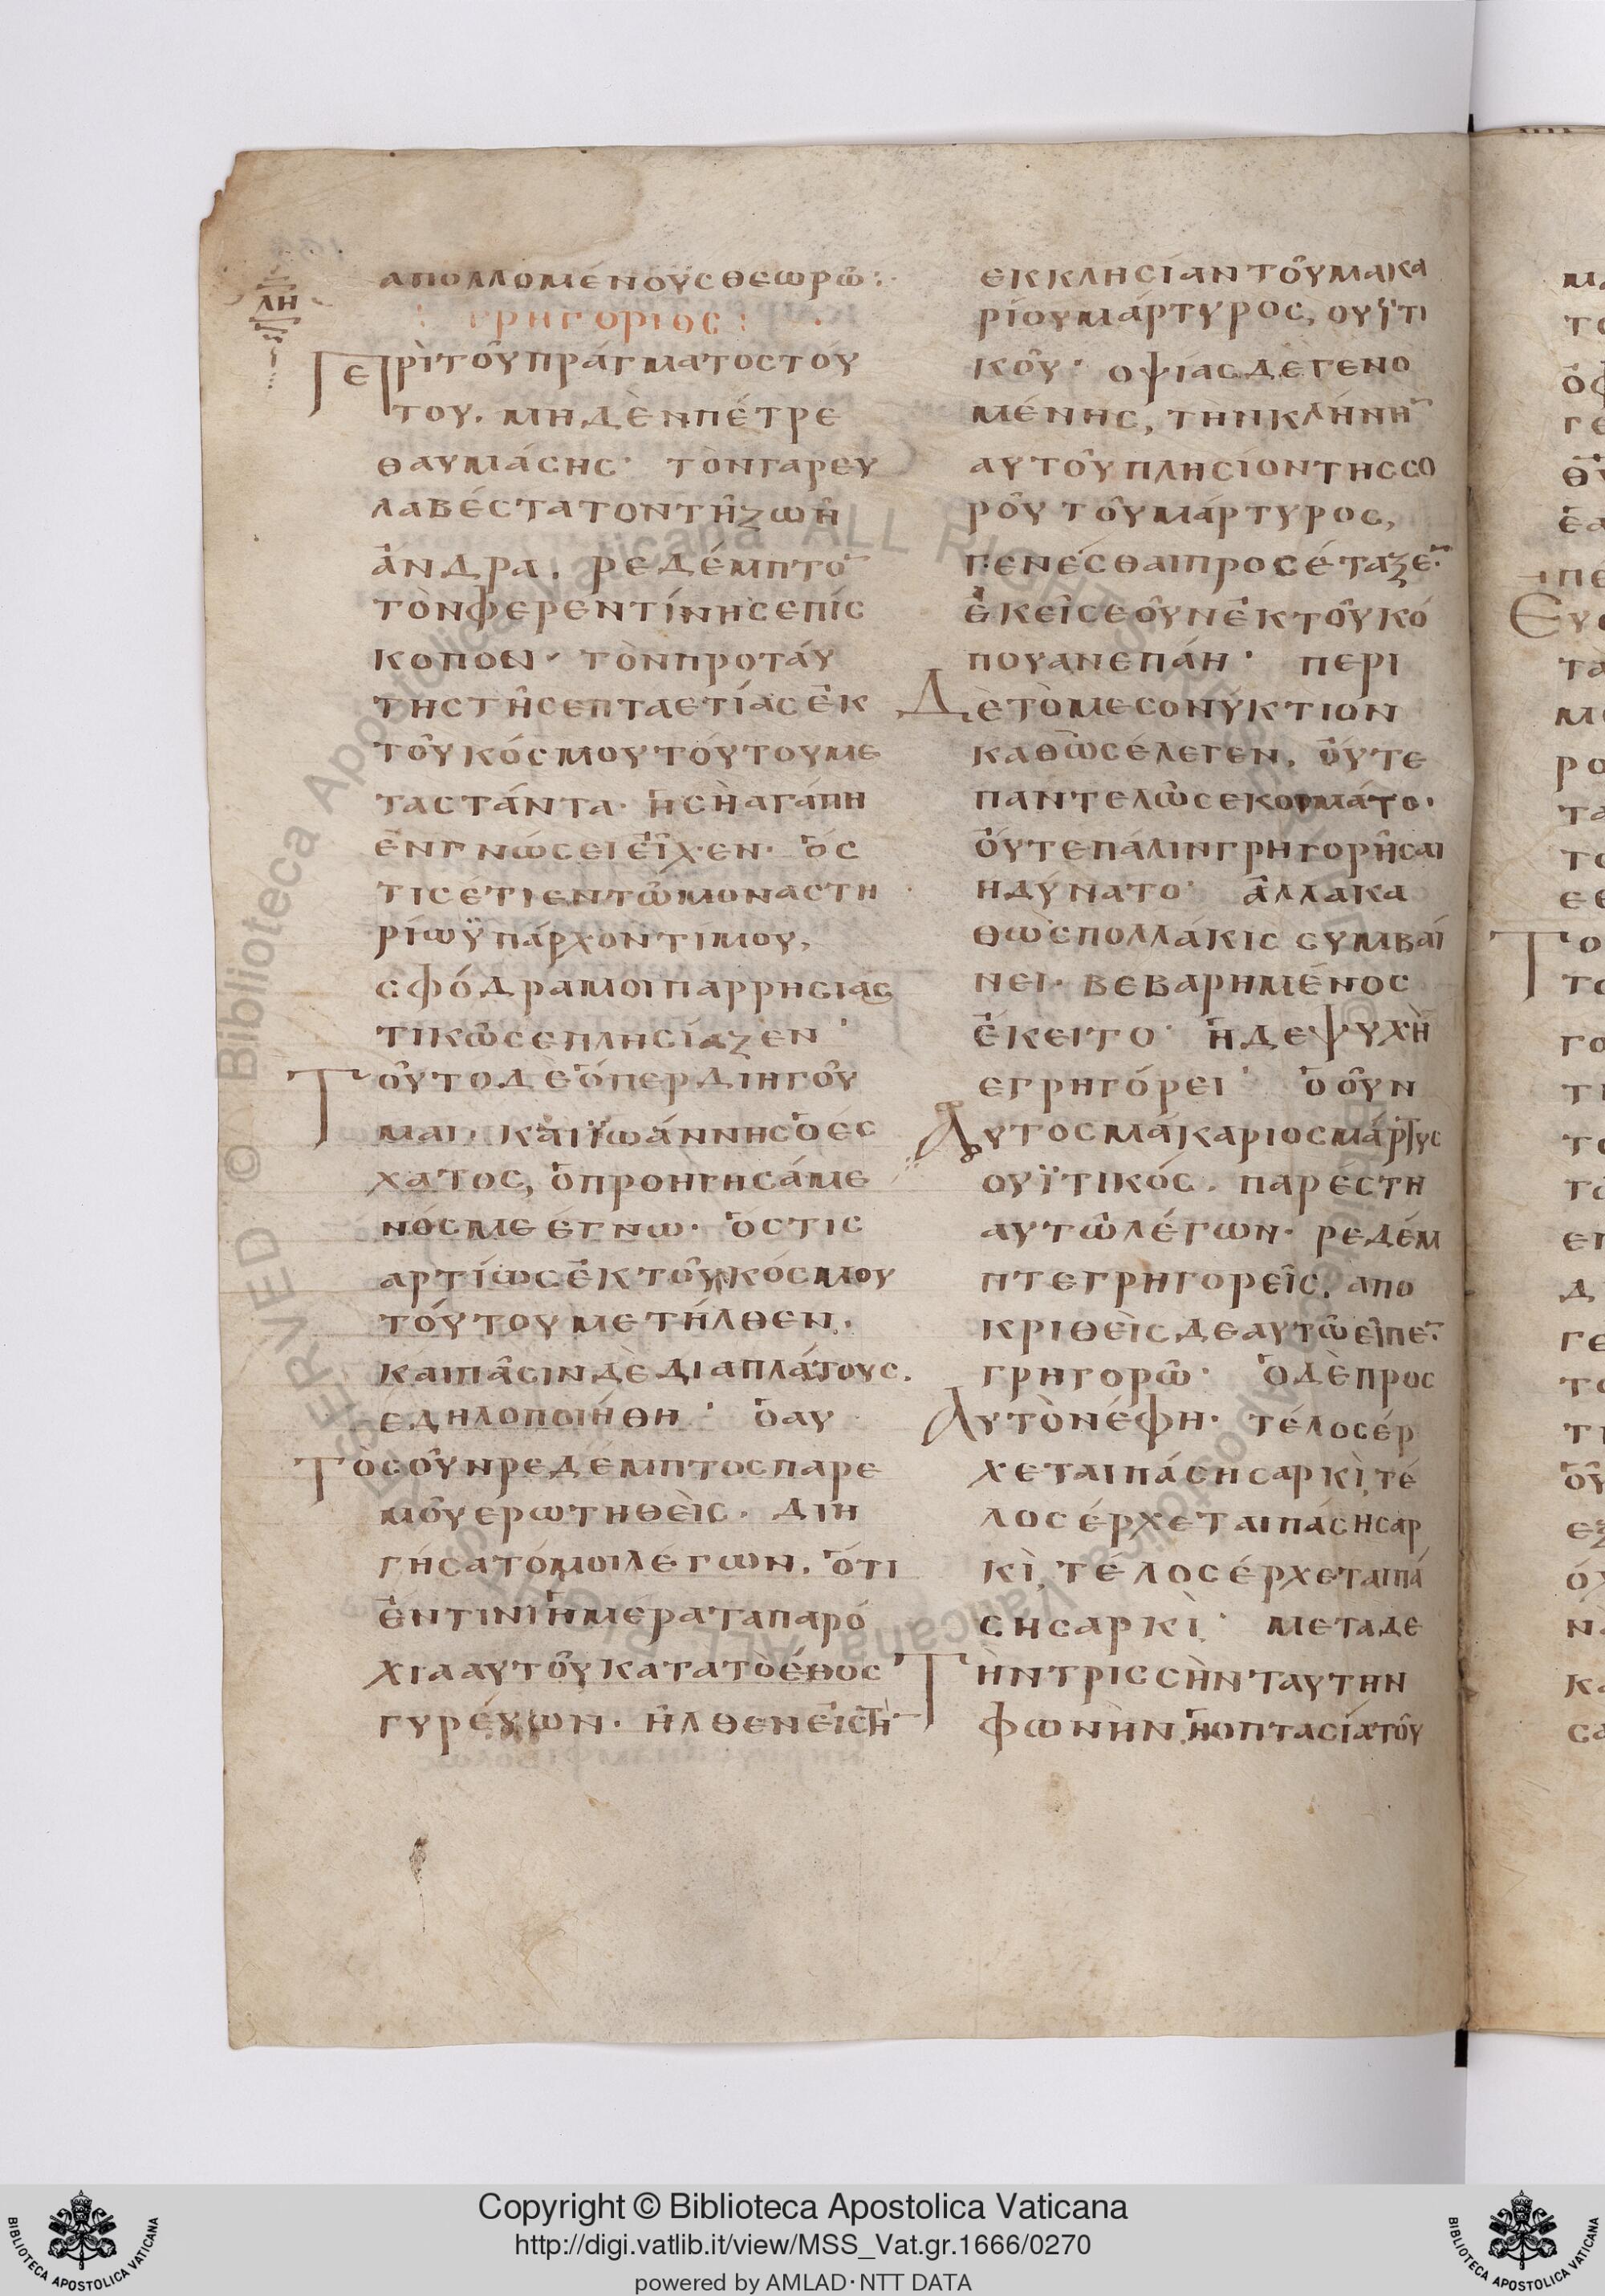 ΛΗ
ἀπολλομένους θεωρῶ:
: ΓΡΗΓΟΡΙΟΣ :
Περὶ τοῦ πράγματος τού
του. μηδὲν πέτρε
θαυμάσης· τὸν γαρ ευ
λαβέστατον τῆ ζωῆ
ἄνδρα. ρεδέμπτο̅
τὸν φερεντίνης επίσ
κοπον· τὸν προ τάυ
της τῆς επταετίας ἐκ
τοῦ κόσμου τόυτου με
ταστάντα· ἡ σὴ αγάπη
ἐν γνώσει εἶχεν· ὅσ
τις έτι εν τῶ μοναστη
ρίω ϋπάρχοντι μου,
σφόδρα μοι παρρησιασ
τικῶς επλησίαζεν·
Τοῦτο δὲ ὅπερ διηγοῦ
μαι, καὶ ϊωάννης ὁ έσ
χατος, ὁ προηγησάμε
νός με έγνω· ὅστις
αρτίως ἐκ τοῦ κόσμου
τόυτου μετήλθεν.
και πᾶσιν δὲ δια πλάτους.
εδηλοποιήθη· ὁ αυ
Τὸς οῦν ρεδέμπτος παρε
μοῦ ερωτηθεὶς. διη
γήσατό μοι λέγων, ὅτι
ἐν τινὶ ἡμερα τα παρό
χια αυτοῦ κατα τὸ έθος
γυρέυων· ἦλθεν εἰς τὴ̅
εκκλησίαν τοῦ μακα
ρίου μάρτυρος, ουϊτι
κοῦ· οψίας δὲ γενο
μένης, τὴν κλήνη̅
αυτοῦ πλησίον της σο
ροῦ τοῦ μάρτυρος,
γενέσθαι προσέταξε̅·
ἐκεῖσε οῦν ἐκ τοῦ κό
που ανεπάη· περι
Δὲ τὸ μεσονύκτιον
καθὼς έλεγεν, ούτε
παντελῶς εκοιμάτο·
ούτε πάλιν γρηγορῆσαι
ηδύνατο· ἀλλα κα
θὼς πολλάκις συμβαί
νει· βεβαρημένος
έκειτο· ἡ δε ψυχὴ
εγρηγόρει· ὁ οῦν
Αυτος μακάριος μάρτυς
ουϊτικός. παρέστη
αυτῶ λέγων· ρεδέμ
πτε γρηγορεῖς, απο
κριθεὶς δε αυτῶ εῖπε̅·
γρηγορῶ· ὁ δὲ προς
Αυτὸν έφη· τέλος έρ
χεται πάση σαρκὶ, τέ
λος έρχεται πάση σαρ
κὶ, τέλος έρχεται πά
ση σαρκὶ· μετα δε
Τὴν τρισσὴν ταυτην
φωνὴν, ἡ οπτασία τοῦ
Copyright © Biblioteca Apostolica Vaticana
http://digi.vatlib.it/view/MSS_Vat.gr.1666/0270
powered by AMLAD·NTT DATA
BIBLIOTECA APOSTOLICA VATICANA
BIBLIOTECA APOSTOLICA VATICANA